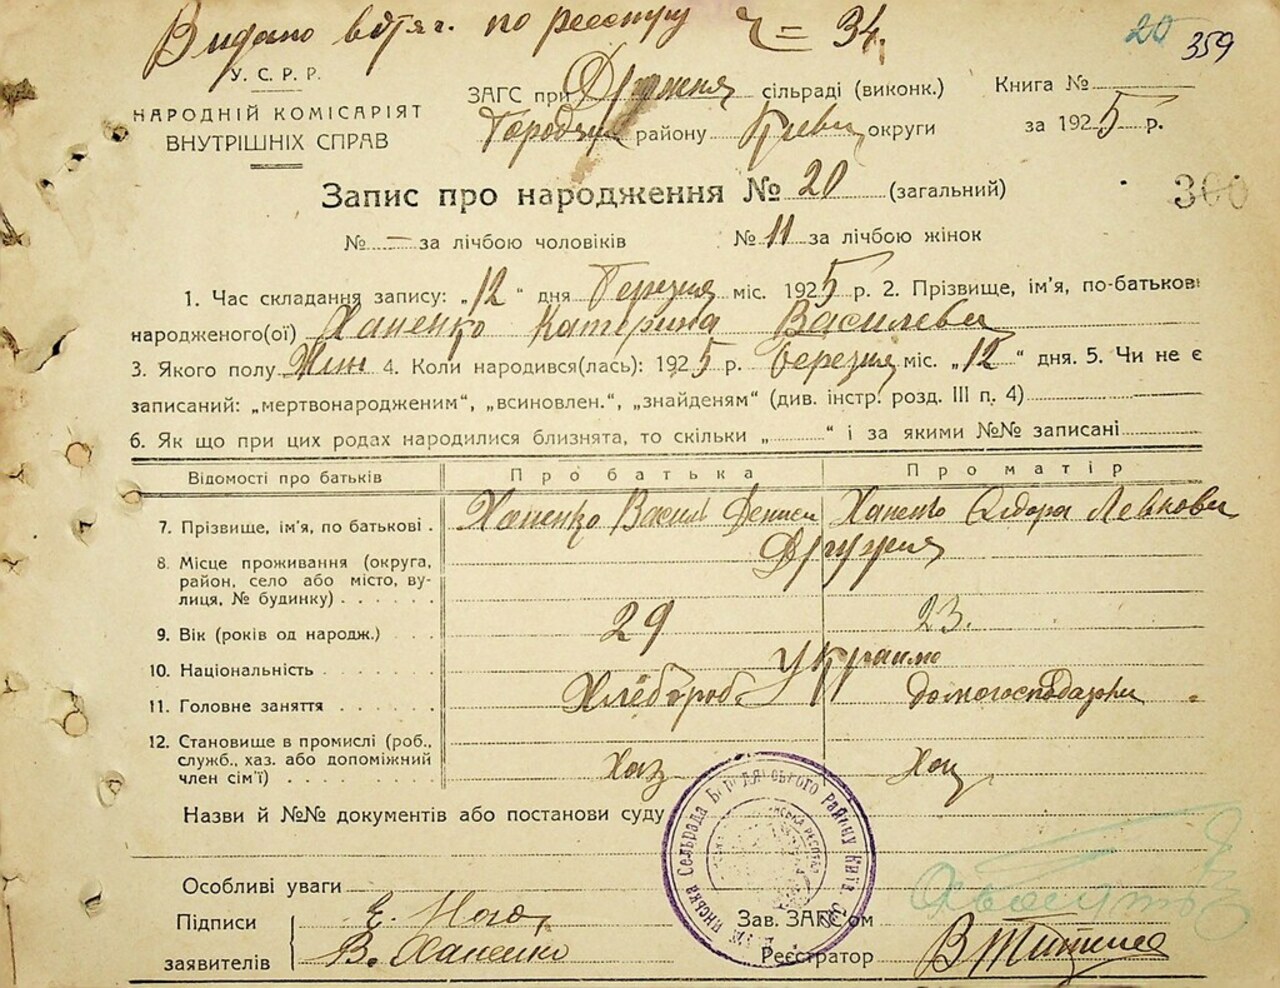 Видано витяг. по реєстру ч = 34.
20 359
У. С. Р. Р.
НАРОДНІЙ КОМІСАРІЯТ
ВНУТРІШНІХ СПРАВ
ЗАГС при Дружня сільраді (виконк.)
Городян району Київ округи
Книга №
за 1925 р.
Запис про народження № 20 (загальний)
300
№ — за лічбою чоловіків № 11 за лічбою жінок
1. Час складання запису: „12“ дня Березня міс. 1925 р. 2. Прізвище, ім'я, по-батькові
народженого(ої) Ханенко Катерина Василевна
3. Якого полу Жін 4. Коли народився(лась): 1925 р. березня міс. „12“ дня. 5. Чи не є
записаний: „мертвонародженим“, „всиновлен.“, „знайденям“ (див. інстр. розд. III п. 4)
6. Як що при цих родах народилися близнята, то скільки „ “ і за якими №№ записані
Відомості про батьків Про батька Про матір
7. Прізвище, ім'я, по батькові . Ханенко Василь Денисов Ханенко Федора Левкова
8. Місце проживання (округа, район, село або місто, вулиця, № будинку) . . . . . Дружня
9. Вік (років од народж.) . . . 29 23.
10. Національність . . . . . . . Україно
11. Головне заняття . . . . . . Хлебороб домогосподарка
12. Становище в промислі (роб., служб., хаз. або допоміжний член сім'ї) . . . . . . . . Хаз Хаз
Назви й №№ документів або постанови суду
Сельрада Бородянського Району Київ.
Особливі уваги
Підписи
заявителів
В. Ханенко
Зав. ЗАГС'ом
Реєстратор